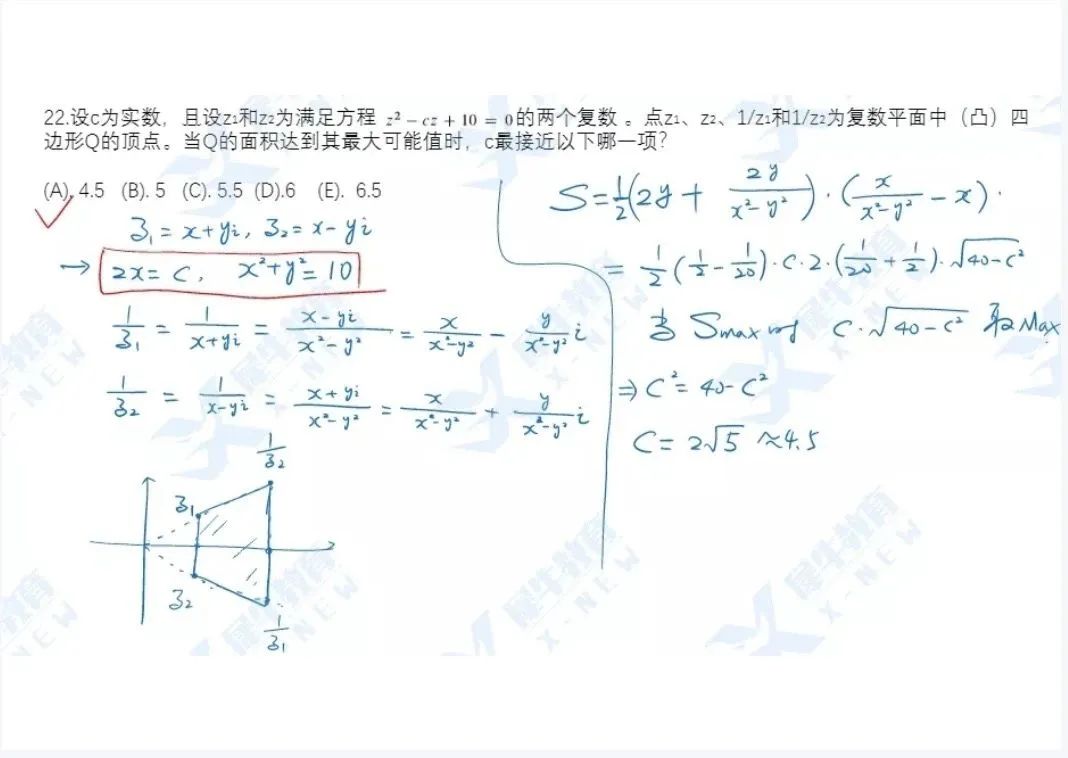 22.设c为实数，且设z₁和z₂为满足方程 z² − cz + 10 = 0的两个复数 。点z₁、z₂、1/z₁和1/z₂为复数平面中（凸）四
边形Q的顶点。当Q的面积达到其最大可能值时，c最接近以下哪一项？
(A). 4.5 (B). 5 (C). 5.5 (D).6 (E). 6.5
z₁ = x+yi, z₂ = x−yi
→ 2x = c, x²+y² = 10
1/z₁ = 1/(x+yi) = (x−yi)/(x²−y²) = x/(x²−y²) − y/(x²−y²) i
1/z₂ = 1/(x−yi) = (x+yi)/(x²−y²) = x/(x²−y²) + y/(x²−y²) i
1/z₂
z₁
z₂
1/z₁
S = 1/2 (2y + 2y/(x²−y²)) · (x/(x²−y²) − x) ·
= 1/2 (1/2 − 1/20) · c · 2 · (1/20 + 1/2) · √(40−c²)
当 Smax 时 c · √(40−c²) 取Max
⇒ c² = 40−c²
c = 2√5 ≈4.5
犀牛教育
X-NEW